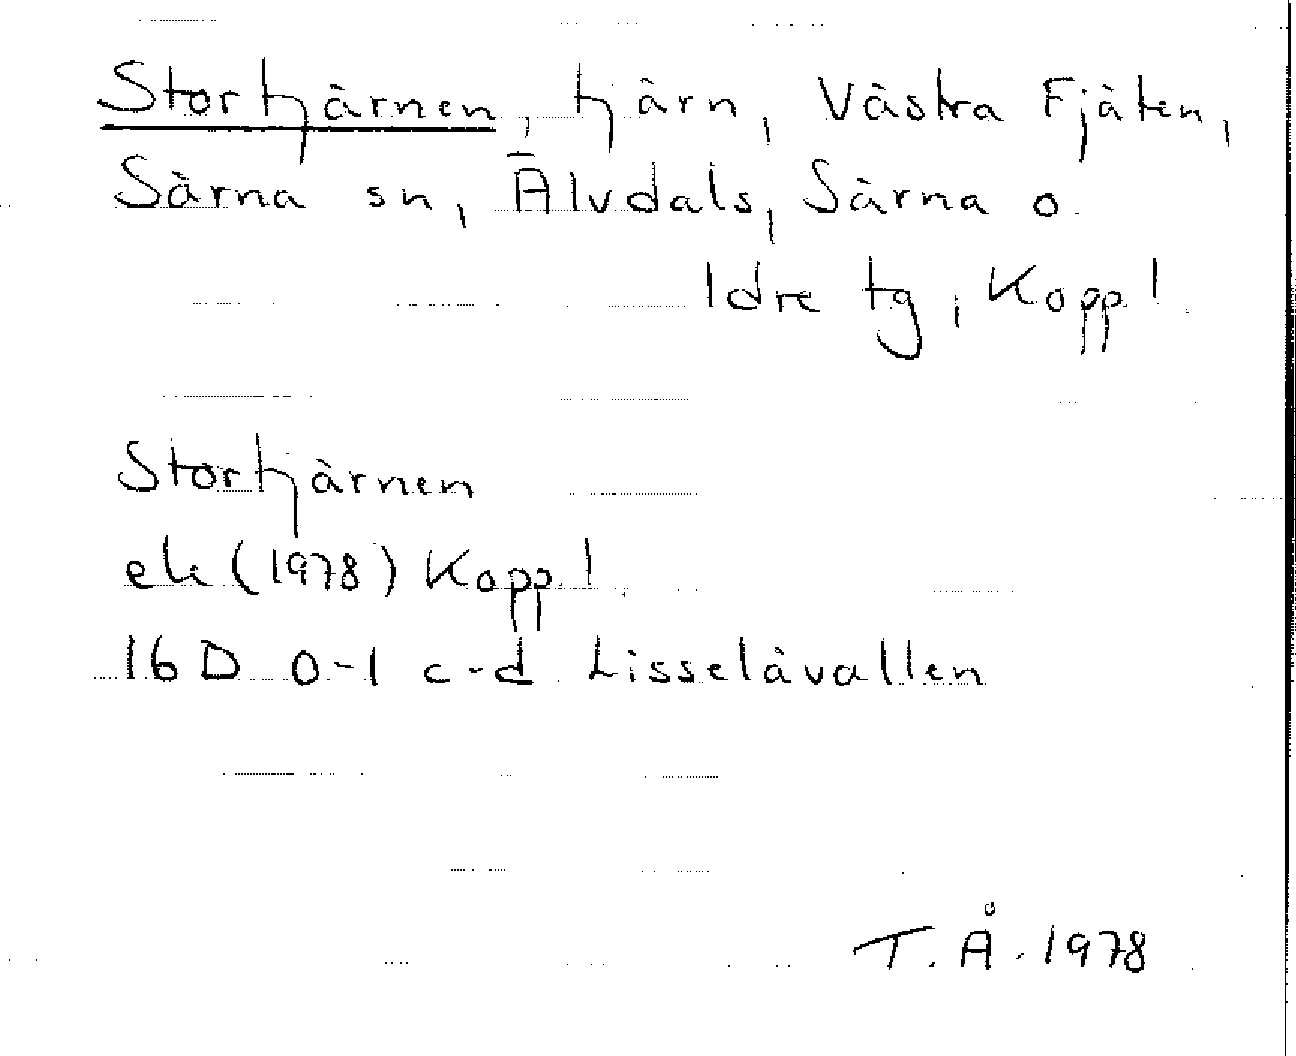 Stortjärnen, tjärn, Västra Fjäten,
Särna sn, Älvdals, Särna o.
Idre tg, Kopp l.
Stortjärnen
ek (1978) Kopp. l.
16 D 0-1 c-d Lisselåvallen
T. Å. 1978